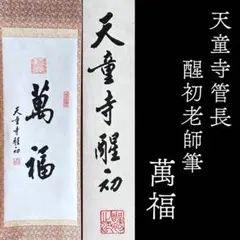 天童寺管長
醒初老師筆
萬福
天童寺醒初
萬福
天童寺醒初